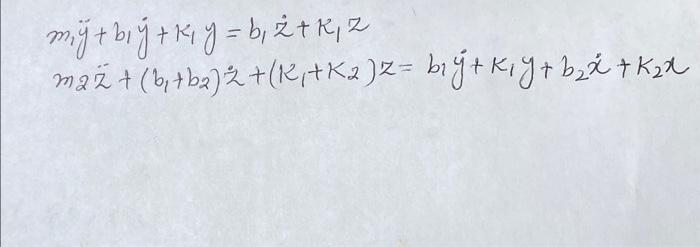 m₁ÿ + b₁ẏ + K₁y = b₁ż + K₁z
m2z̈ + (b₁+b₂)ż + (K₁+K₂)z = b₁ẏ + K₁y + b₂ẋ + K₂x